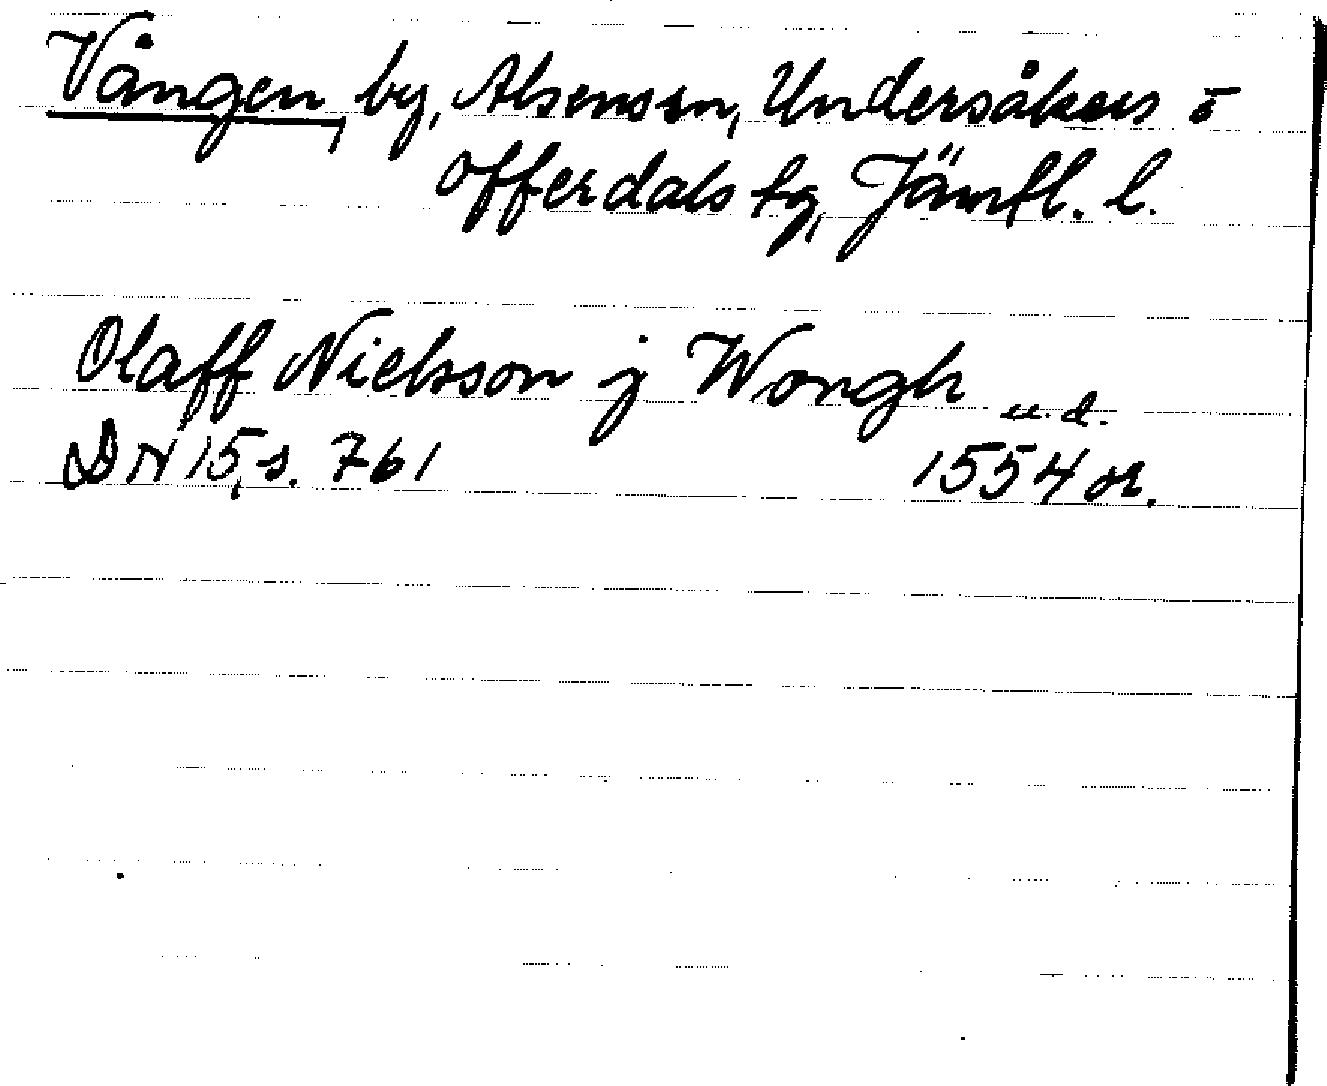 Vången, by, Alsens sn, Undersåkers o
Offerdals tg, Jämtl. l.
Olaff Nielsson j Wongh u.d.
DN 15, s. 761 1554 or.